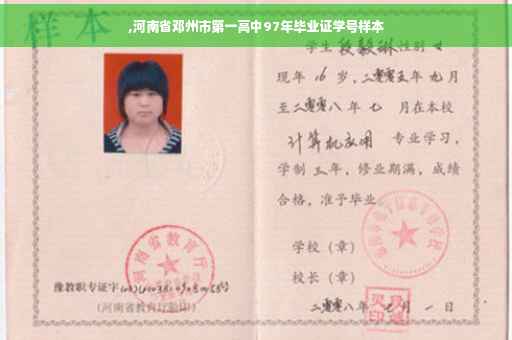 ,河南省邓州市第一高中97年毕业证学号样本
样本
学生 段毅琳 性别 女
现年 16 岁，二零零五年 九月
至二零零八年 七 月在本校
计算机应用 专业学习，
学制 三年，修业期满，成绩
合格，准予毕业
学校（章）
校长（章）
二零零八年 七 月 一 日
河南省教育厅
豫教职专证字
（河南省教育厅验印）